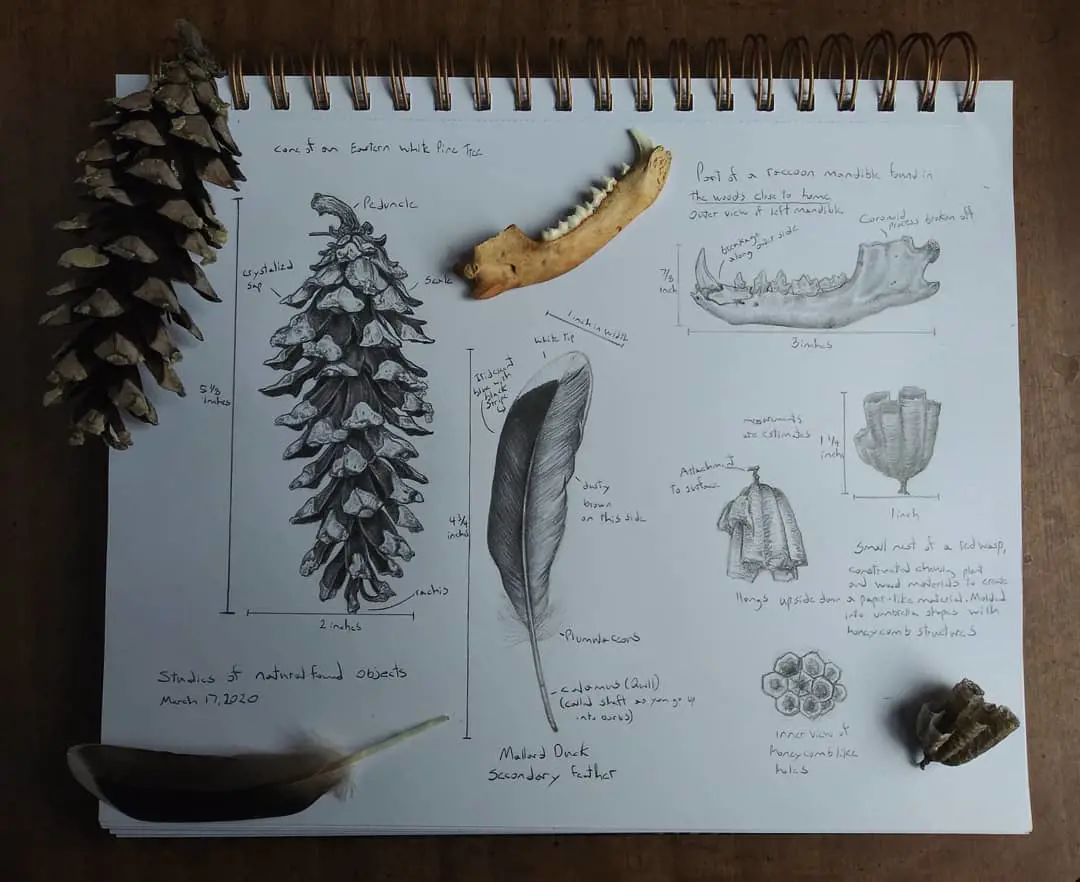 Cone of an Eastern White Pine Tree
Peduncle
crystalized
sap
Scale
5 1/8
inches
rachis
2 inches
Studies of natural found objects
March 17, 2020
Part of a raccoon mandible found in
the woods close to home
outer view of left mandible
Coronoid
Process broken off
breakage
along
side
7/8
inch
3 inches
1 inch in width
White Tip
Iridescent
blue with
black
stripe
dusty
brown
on this side
4 3/4
inches
Plumulaceous
calamus (Quill)
(called shaft as you go up
into barbs)
Mallard Duck
Secondary feather
measurements
are estimates
1 1/4
inch
1 inch
Attachment
to surface
Hangs upside down
Small nest of a Red wasp,
constructed chewing plant
and wood materials to create
a paper-like material. Molded
into umbrella shapes with
honeycomb structures
inner view of
honeycomb like
holes